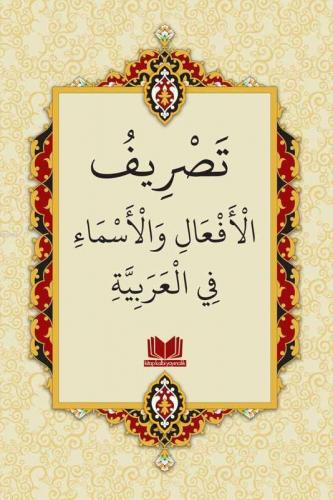 تَصْرِيفُ
الْأَفْعَالِ وَالْأَسْمَاءِ
فِي الْعَرَبِيَّةِ
kitap kalbi yayıncılık